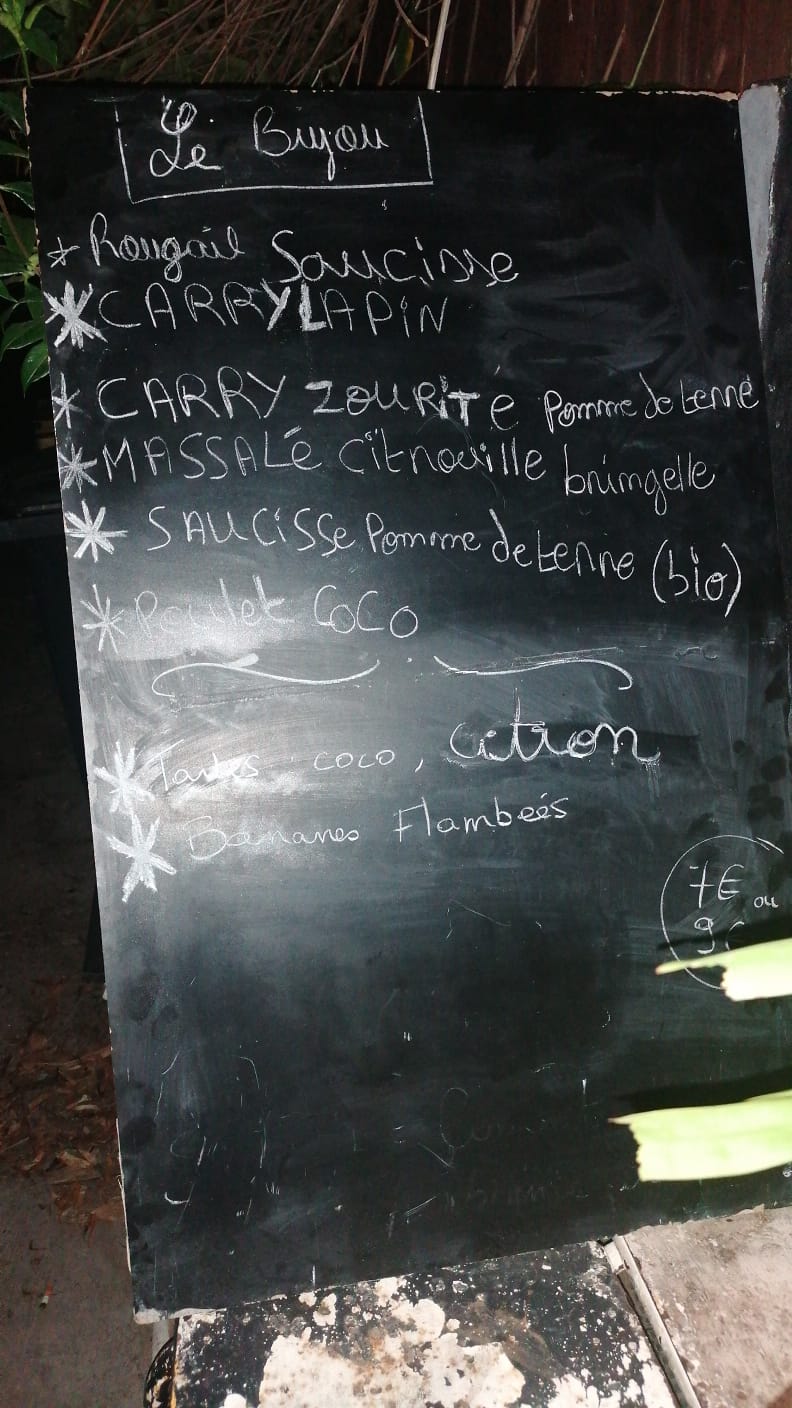 Le Bijou
* Rougail Saucisse
* CARRY LAPiN
* CARRY ZOURiTE Pomme de terre
* MASSALé Citrouille bringelle
* SAUCiSSe Pomme de terre (bio)
* Poulet COCO
* Tartes coco, citron
* Bananes Flambeés
7€ ou
9€